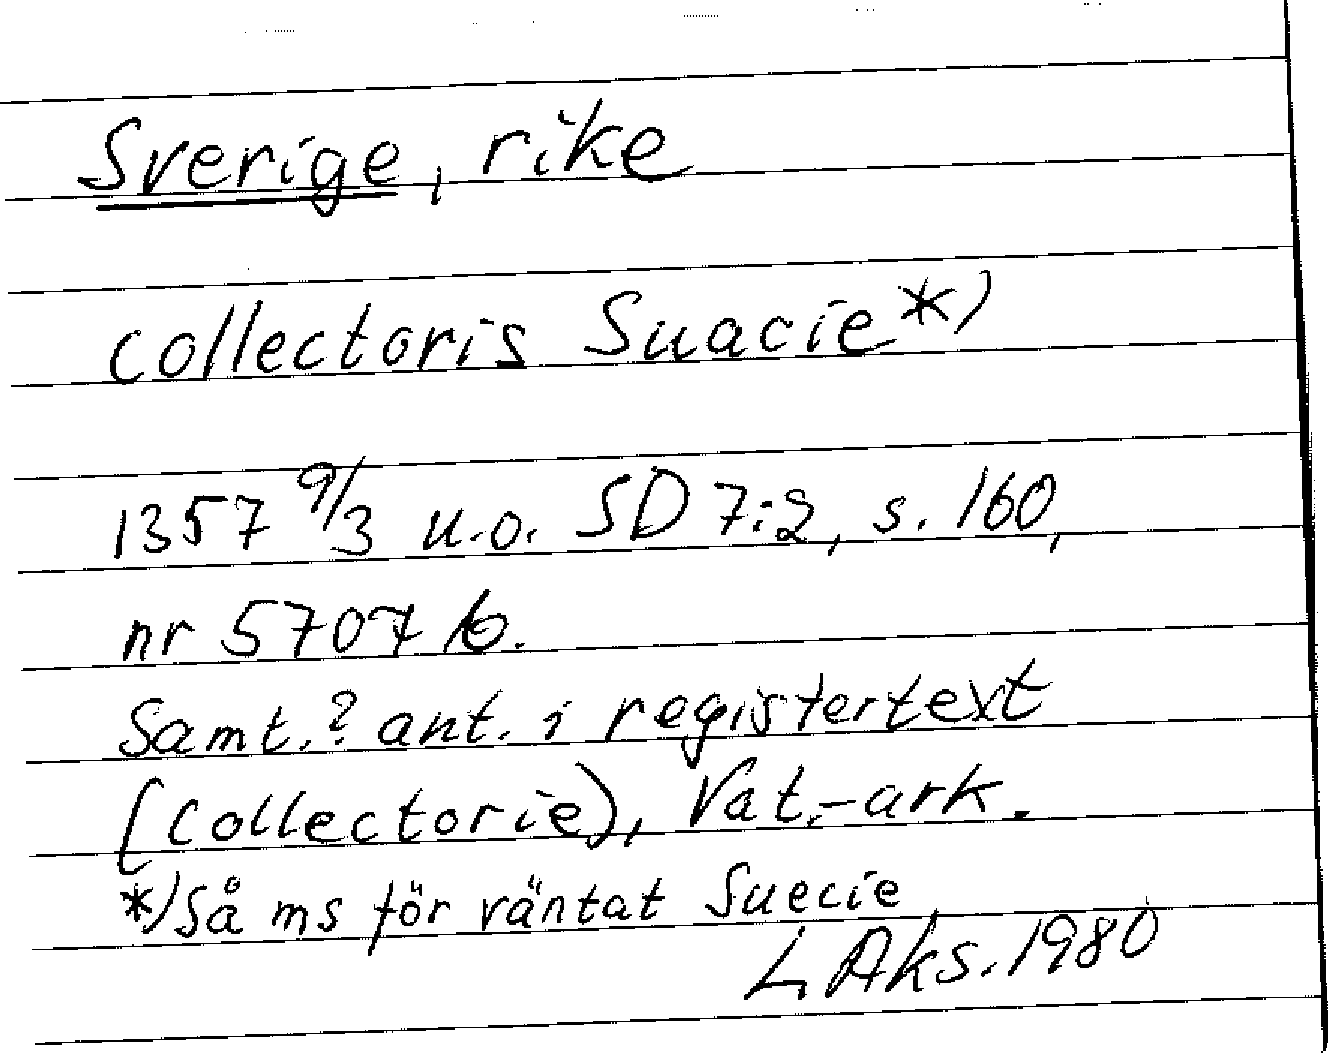 Sverige, rike
collectoris Suacie*)
1357 9/3 u.o. SD 7:2, s. 160,
nr 5707 b.
Samt.? ant. i registertext
(Collectorie), Vat.-ark.
*) Så ms för väntat Suecie
L Aks. 1980